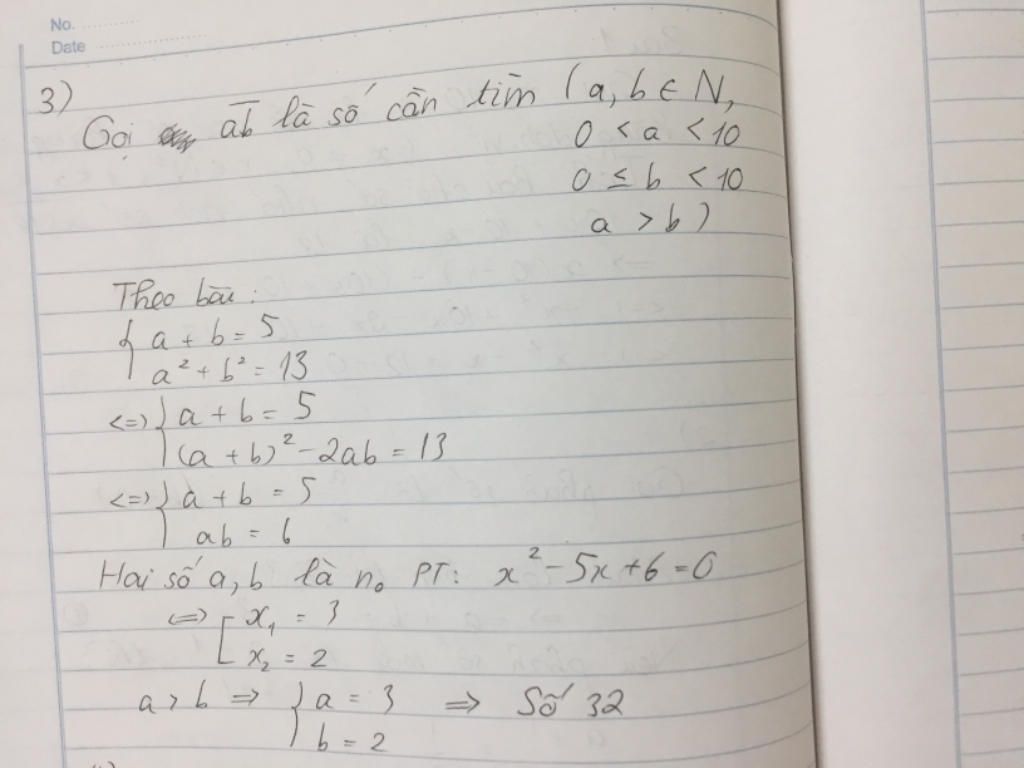 No.
Date
3)
Gọi ab̅ là số cần tìm (a, b ∈ N,
0 < a < 10
0 ≤ b < 10
a > b)
Theo bài:
{ a + b = 5
a² + b² = 13
<=> { a + b = 5
(a + b)² - 2ab = 13
<=> { a + b = 5
ab = 6
Hai số a, b là n₀ PT: x² - 5x + 6 = 0
<=> [ x₁ = 3
x₂ = 2
a > b => { a = 3 => Số 32
b = 2